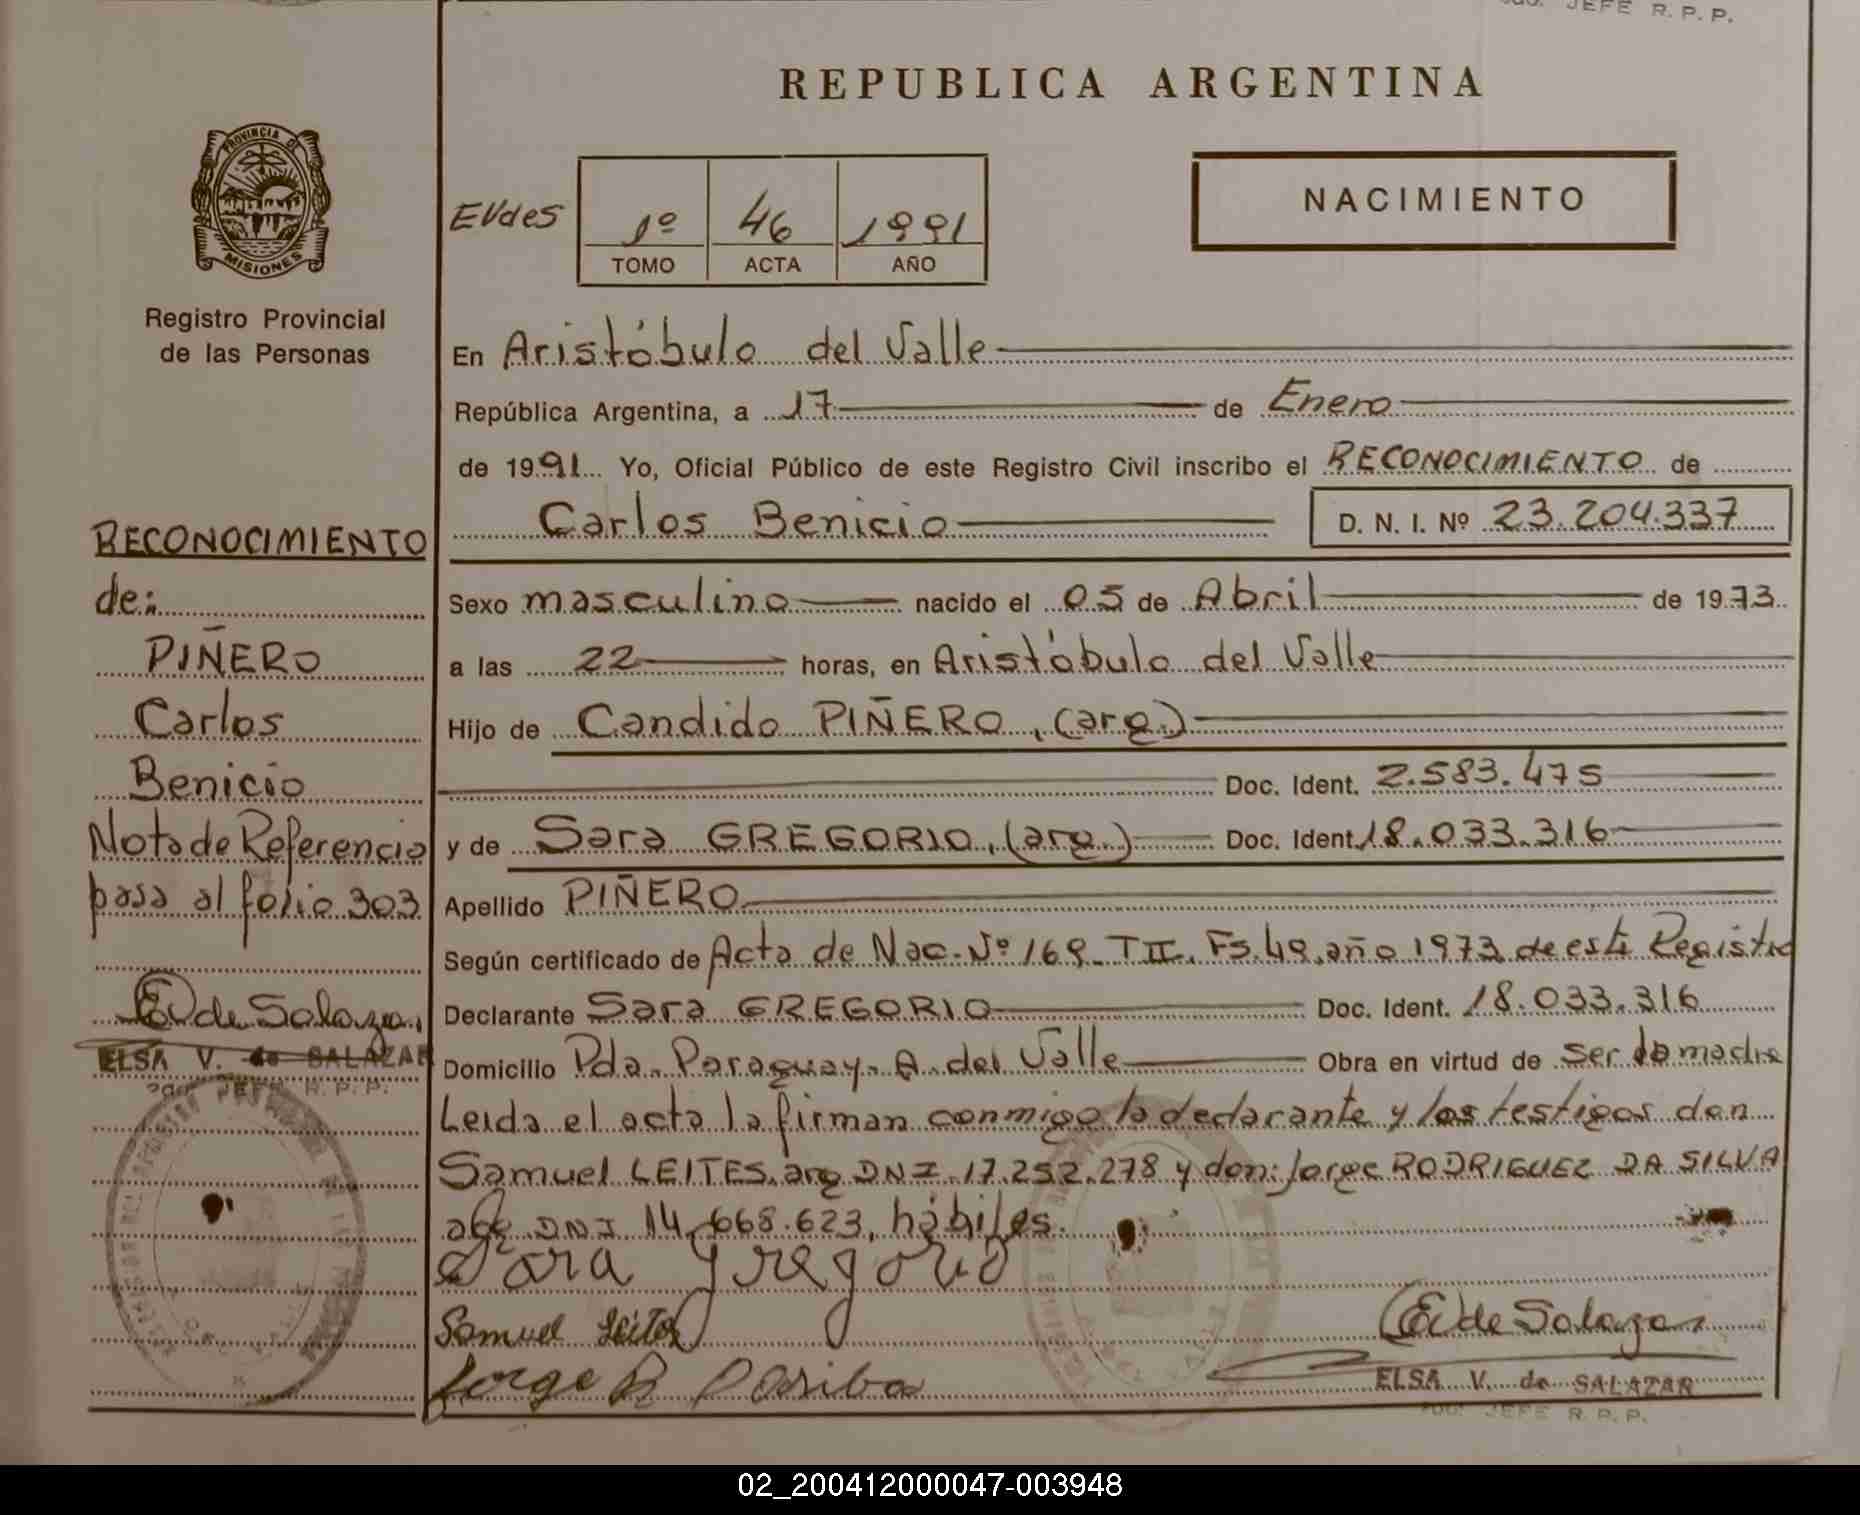 JEFE R. P. P.
REPUBLICA ARGENTINA
PROVINCIA DE
MISIONES
Registro Provincial
de las Personas
EVdeS
1º 46 1991
TOMO ACTA AÑO
NACIMIENTO
En Aristóbulo del Valle
República Argentina, a 17 de Enero
de 1991 Yo, Oficial Público de este Registro Civil inscribo el RECONOCIMIENTO de
Carlos Benicio D. N. I. Nº 23.204.337
Sexo masculino nacido el 05 de Abril de 1973
a las 22 horas, en Aristóbulo del Valle
Hijo de Candido PIÑERO, (arg.)
Doc. Ident. 2.583.475
y de Sara GREGORIO, (arg.) Doc. Ident. 18.033.316
Apellido PIÑERO
Según certificado de Acta de Nac. Nº 169 TII. Fs. 49, año 1973 de este Registro
Declarante Sara GREGORIO Doc. Ident. 18.033.316
Domicilio Pda. Paraguay. A. del Valle Obra en virtud de ser la madre
Leida el acta la firman conmigo la declarante y los testigos don
Samuel LEITES, arg DNI. 17.252.278 y don: Jorge RODRIGUEZ DA SILVA
DNI 14.668.623, hábiles.
Sara Gregorio
Samuel Leites
Jorge R
EVde Salazar
ELSA V. de SALAZAR
JEFE R. P. P.
RECONOCIMIENTO
de:
PIÑERO
Carlos
Benicio
Nota de Referencia
pasa al folio 303
EVde Salazar
ELSA V. de SALAZAR
JEFE R. P. P.
02_200412000047-003948